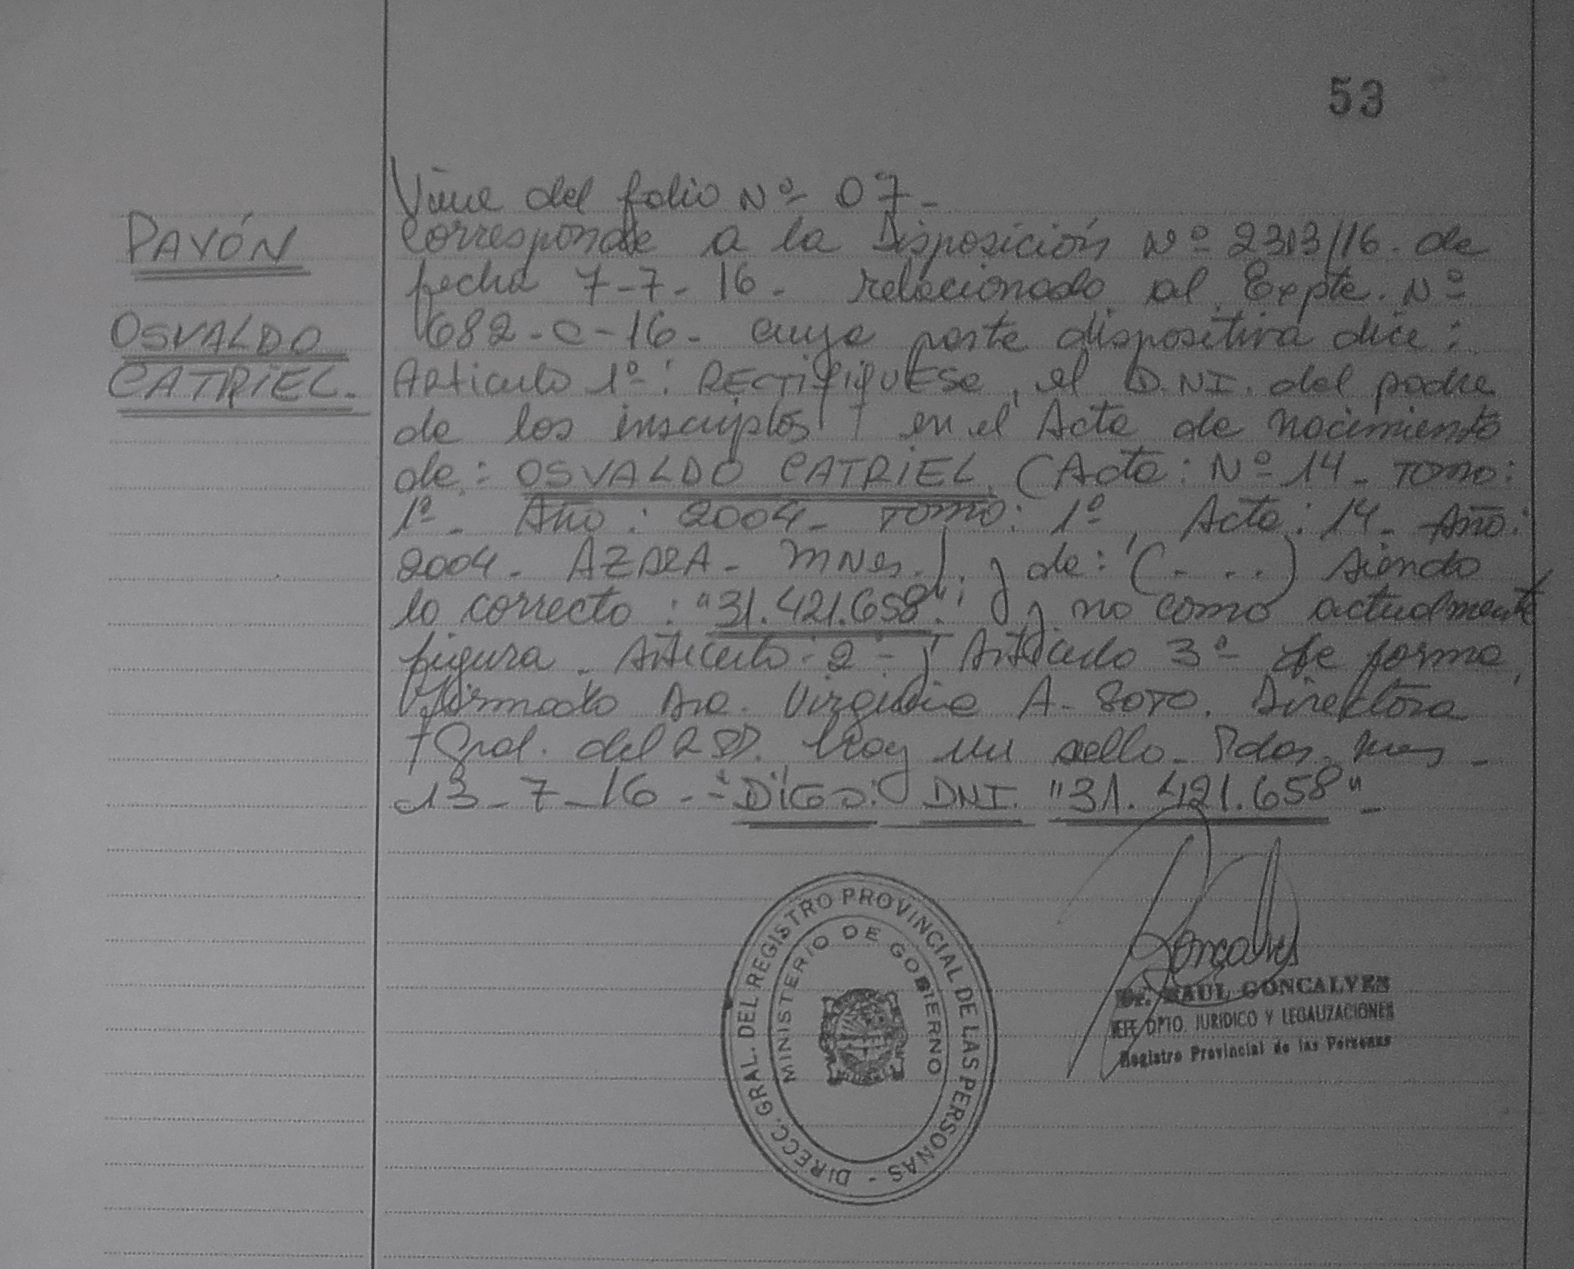 53
PAVÓN
OSVALDO
CATRIEL.
Viene del folio Nº 07-
Corresponde a la Disposición Nº 2313/16. de
fecha 7-7-16- relacionado al Expte. Nº
1682-C-16- cuya parte dispositiva dice:
Articulo 1º: RECTIFIQUESE, el D.NI. del padre
de los inscriptos en el Acta de nacimiento
de: OSVALDO CATRIEL, (Acta: Nº 14- TOMO:
1º- Año: 2004- TOMO: 1º, Acta: 14- Año:
2004- AZARA- MNes.) y de: (....) siendo
lo correcto: "31.421.658": y no como actualmente
figura- Articulo: 2º- y Articulo 3º- de forma,
firmado Dra. Virginia A- SOTO. Directora
Gral. del RPP. hay un sello- Pdas, Mnes-
13-7-16.-"DIGO: DNI. "31.421.658"-
DIRECC. GRAL. DEL REGISTRO PROVINCIAL DE LAS PERSONAS -
MINISTERIO DE GOBIERNO
Goncalves
Dr. RAUL GONCALVES
JEFE DPTO. JURIDICO Y LEGALIZACIONES
Registro Provincial de las Personas